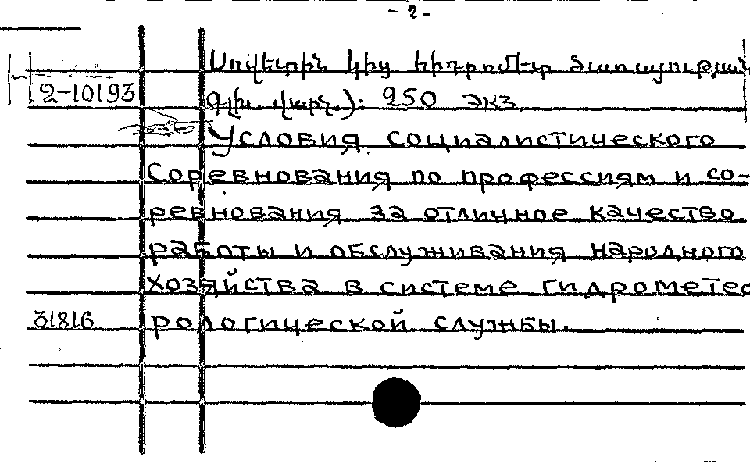 - 2 -
Սովետին կից հիդրոմետ ծառայության
2-10193 գլխ. վարչ.): 250 экз.
Условия социалистического
Соревнования по профессиям и со-
ревнования за отличное качество
работы и обслуживания народного
хозяйства в системе гидрометео
31816 рологической службы.